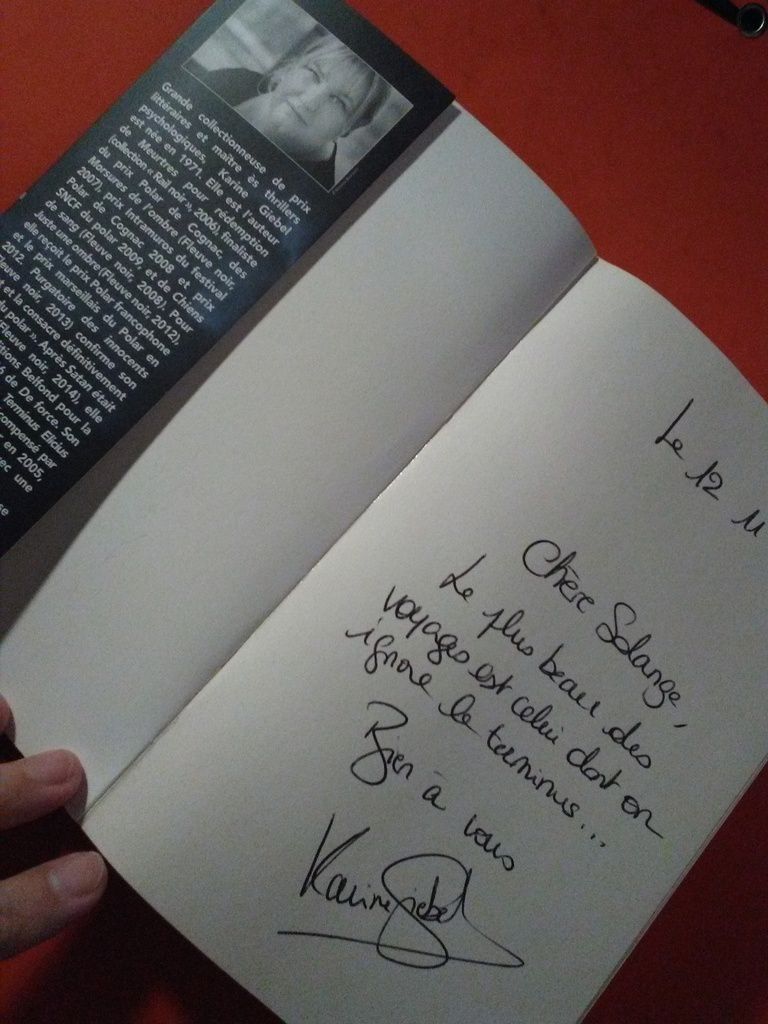 Grande collectionneuse de prix
littéraires et maître ès thrillers
psychologiques, Karine Giebel
est née en 1971. Elle est l'auteur
de Meurtres pour rédemption
(collection « Rail noir », 2006), finaliste
du prix Polar de Cognac, des
Morsures de l'ombre (Fleuve noir,
2007), prix Intramuros du festival
Polar de Cognac 2008 et prix
SNCF du polar 2009 et de Chiens
de sang (Fleuve noir, 2008). Pour
Juste une ombre (Fleuve noir, 2012),
elle reçoit le prix Polar francophone
et le prix marseillais du Polar en
2012. Purgatoire des innocents
euve noir, 2013) confirme son
t et la consacre définitivement
du polar ». Après Satan était
Fleuve noir, 2014), elle
itions Belfond pour la
6 de De force. Son
Terminus Elicius
compensé par
r en 2005,
ec une
se
Le 12 M
Chère Solange,
Le plus beau des
voyages est celui dont on
ignore le terminus...
Bien à vous
Karine Giebel